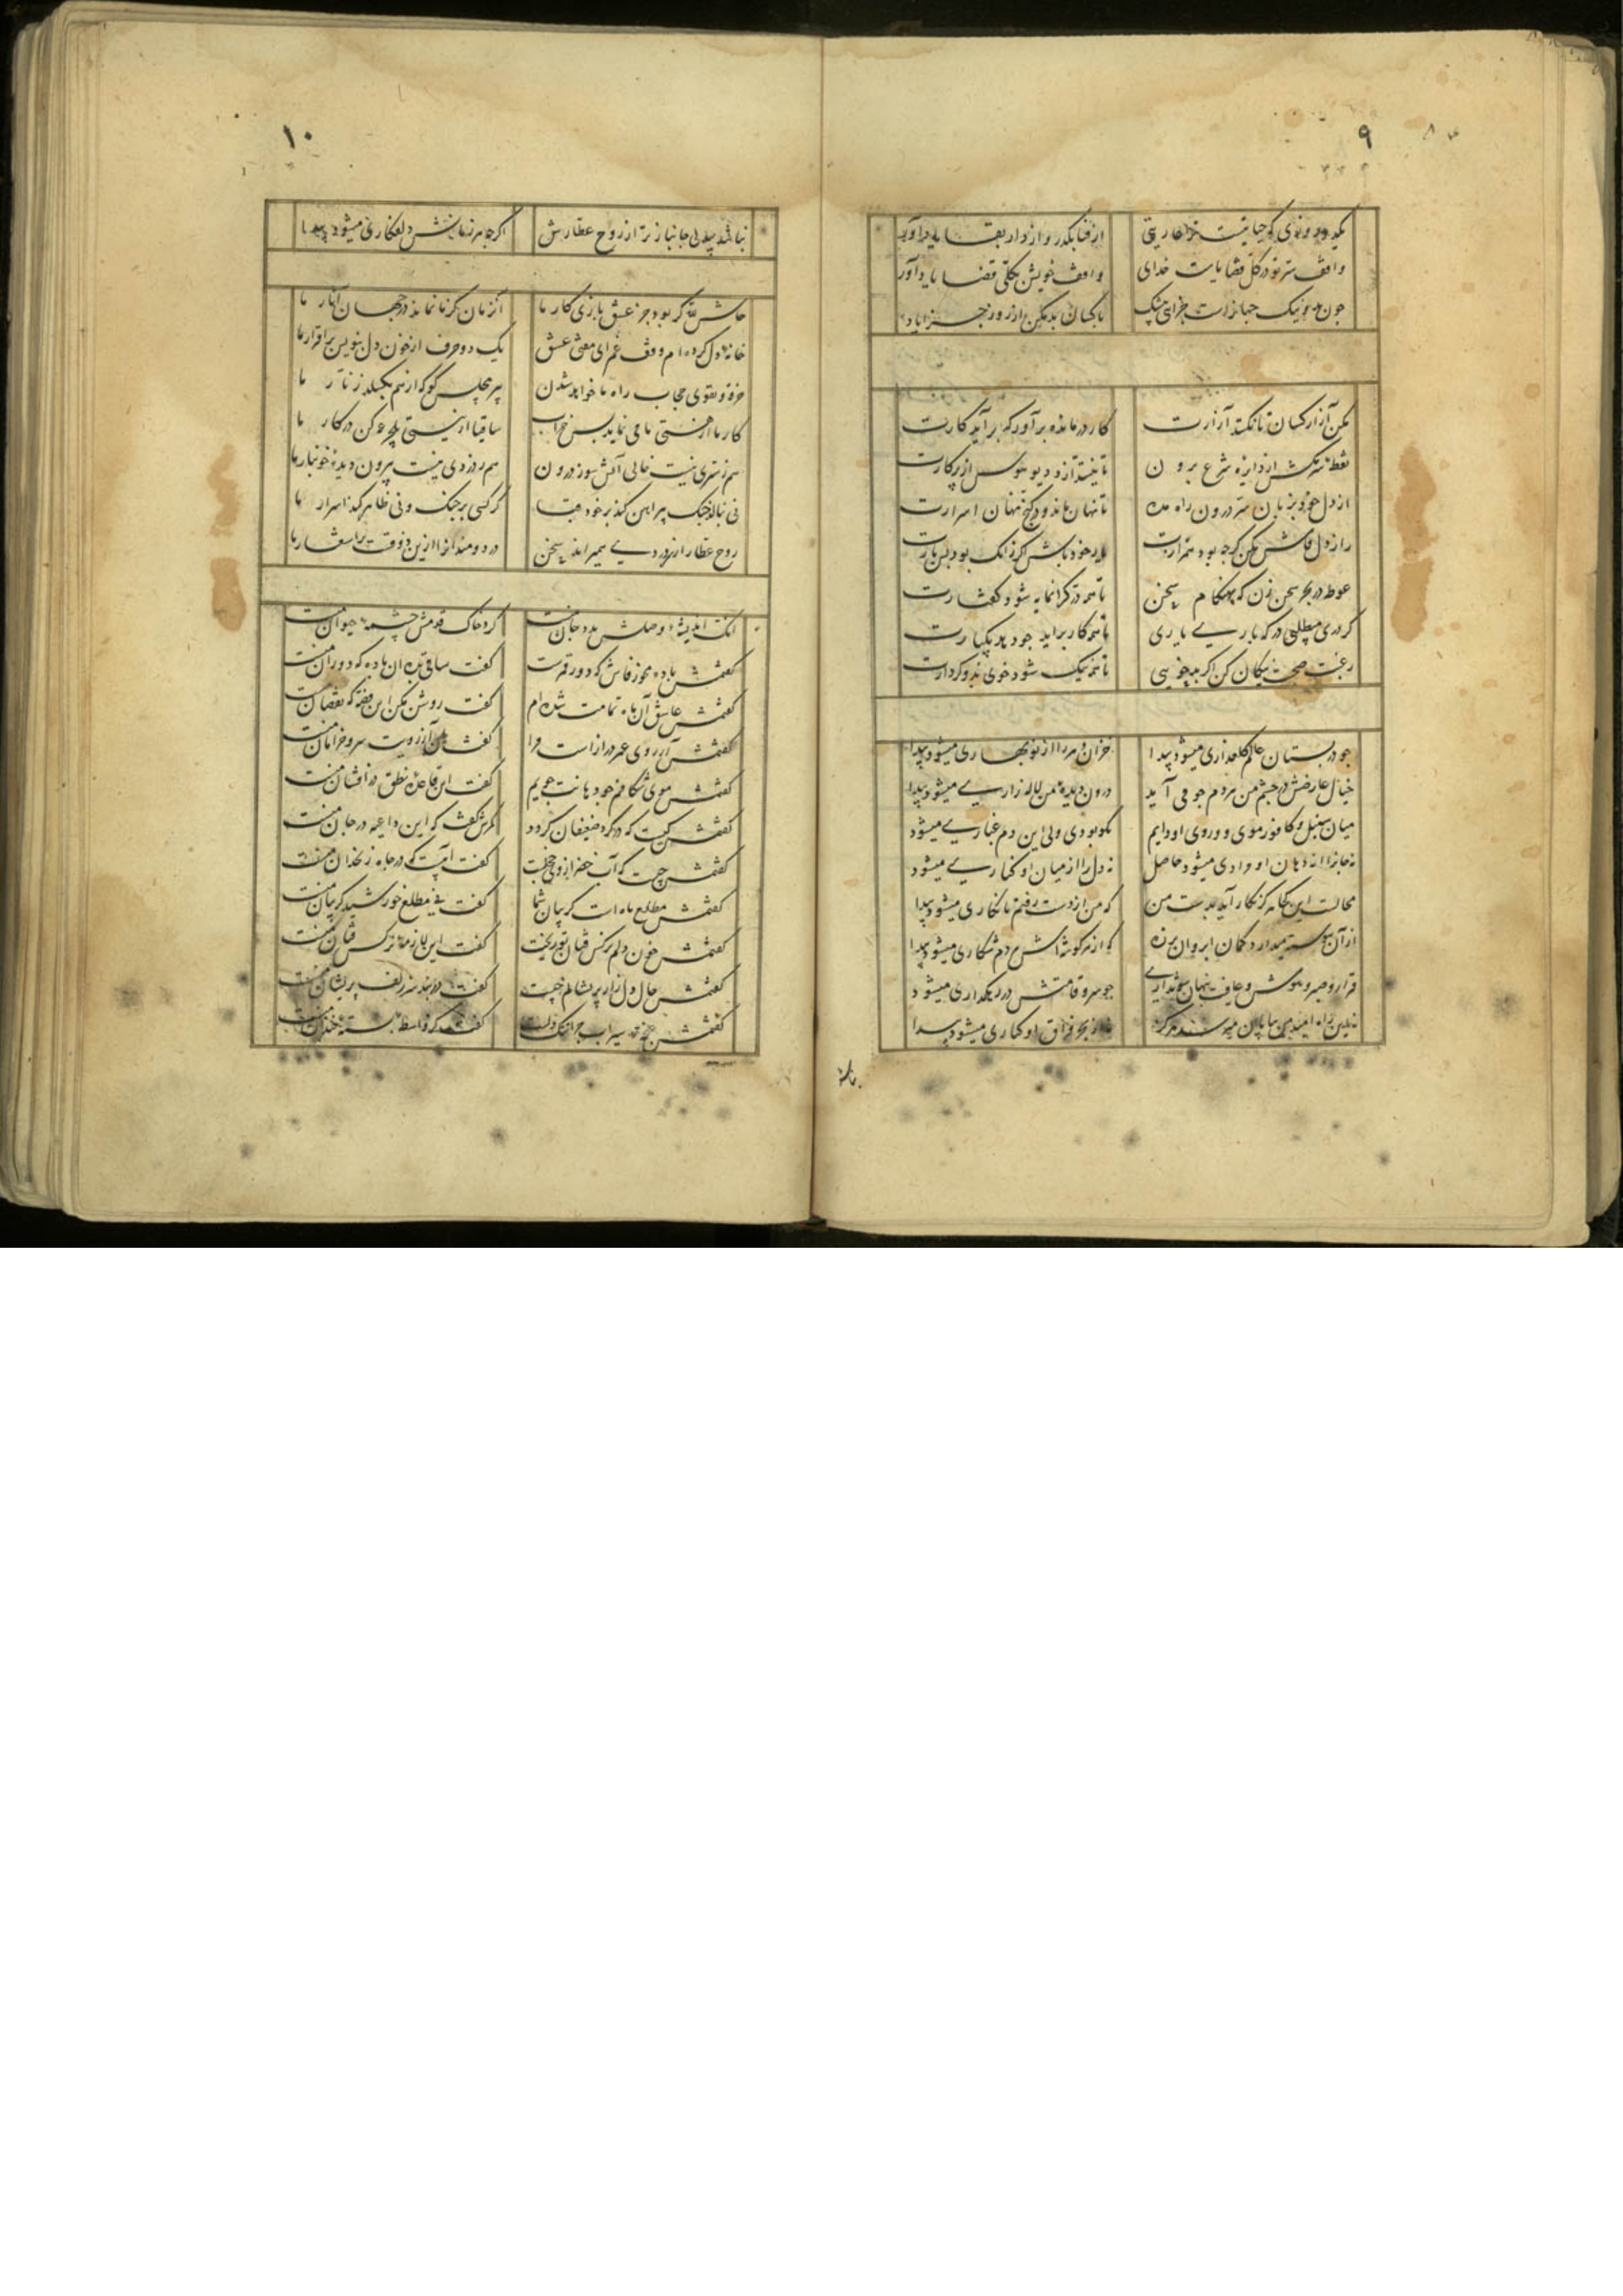 ۹
یکدو روزی که حیاتیست ترا عاریتی از فنا بگذر و از دار بقا یاد آور
واقف سر تو در کل قضایاست خدای واقف خویش بکلی قضا یاد آور
چون بد و نیک جهانراست جزای بیشک با کسان بد مکن از روز جزا یاد
مکن آزار کسان تا نکند آزارت کار درمانده برآور که برآید کارت
نقطه سرمکش از دایره شرع برون تا نیفتد از و دیو هوس از پرکارت
از دل خود بزبان سر درون راه مده تا نهان ماند در کنج نهان اسرارت
راز دل فاش مکن گرچه بود همرازت یار خود باش گر زانک بود بس یارت
غوطه در بحر سخن زن که بهنگام سخن تا همه در گرانمایه شود گفتارت
گر دری میطلبی در که باری یاری تا همه کار برآید چو دهد یکبارت
رغبت صحبت نیکان کن اگر بدخویی تا همه نیک شود خوی بد و کردارت
چو در بستان عالم گلعذاری میشود پیدا خزان مرا از نوبهاری میشود پیدا
خیال عارضش در چشم من هردم چو می آید درون دیده من لاله زاری میشود پیدا
میان سنبل و کافور موی و روی او دایم نکو بودی ولی این دم غباری میشود
نه جانرا از دهان او مرادی میشود حاصل نه دل را از میان او کناری میشود
محالست این که هرگز نگار آید بدست من که من از دست رفتم تا نگاری میشود پیدا
از آن پیوسته میدارد کمان ابروان بر زه که از هر گوشه اش هر دم شکاری میشود پیدا
قرار و صبر و هوش و عافیت پنهان شود از من چو سرو قامتش در رهگذاری میشود
بحر فراق او کناری میشود پیدا
۱۰
نباشد بیدلی جانباز تر از روح عطارش اگرچه هر زمانش دلفگاری میشود پیدا
حاش لله گر بود جز عشق بازی کار ما آنزمان کز ما نماند در جهان آثار ما
خانه دل کرده ام وقف غم ای مفتی عشق یک دو حرف از خون دل بنویس بر اقرار ما
خرقه و تقوی حجاب راه ما خواهد شدن پیر مجلس گو که از هم بگسلد زنار ما
کار ما از هستی ما می نماید بس خراب ساقیا از نیستی یک جرعه کن در کار ما
هم ز سری نیست خالی آتش سوز درون هم ز دردی نیست بیرون دیده خونبار ما
نی بنالد چنگ پیراهن کند بر خود قبا گر کسی بر چنگ و نی ظاهر کند اسرار ما
روح عطار از سر دردی همیراند سخن دردمندانرا ازین ذوقست بر اشعار ما
آنک اندیشه وصلش مدد جان منست گرد خاک قدمش چشمه حیوان منست
گفتمش باده بخور فاش که دور قمرست گفت ساقی بده آن باده که دوران منست
گفتمش عاشق آن ماه تمامت شده ام گفت روشن مکن این قصه که نقصان منست
گفتمش آرزوی عمر درازاست مرا گفت آن آرزویت سرو خرامان منست
گفتمش موی شکافم چو دهانت جویم گفت این قاعده نطق در افشان منست
گفتمش کیست که در گرد ضعیفان گردد گفت که این داعیه در جان منست
گفتمش چیست که آب خضر از وی خجلست گفت آبیست که در چاه زنخدان منست
گفتمش مطلع ماه است گریبان شما گفت نی مطلع خورشید گریبان منست
گفتمش خون دلم نرگس فتان تو ریخت گفت این از نرگس فتان منست
گفتمش حال دل زار پریشانم چیست گفت در بند سر زلف پریشان منست
گفتمش سیراب گفت منست